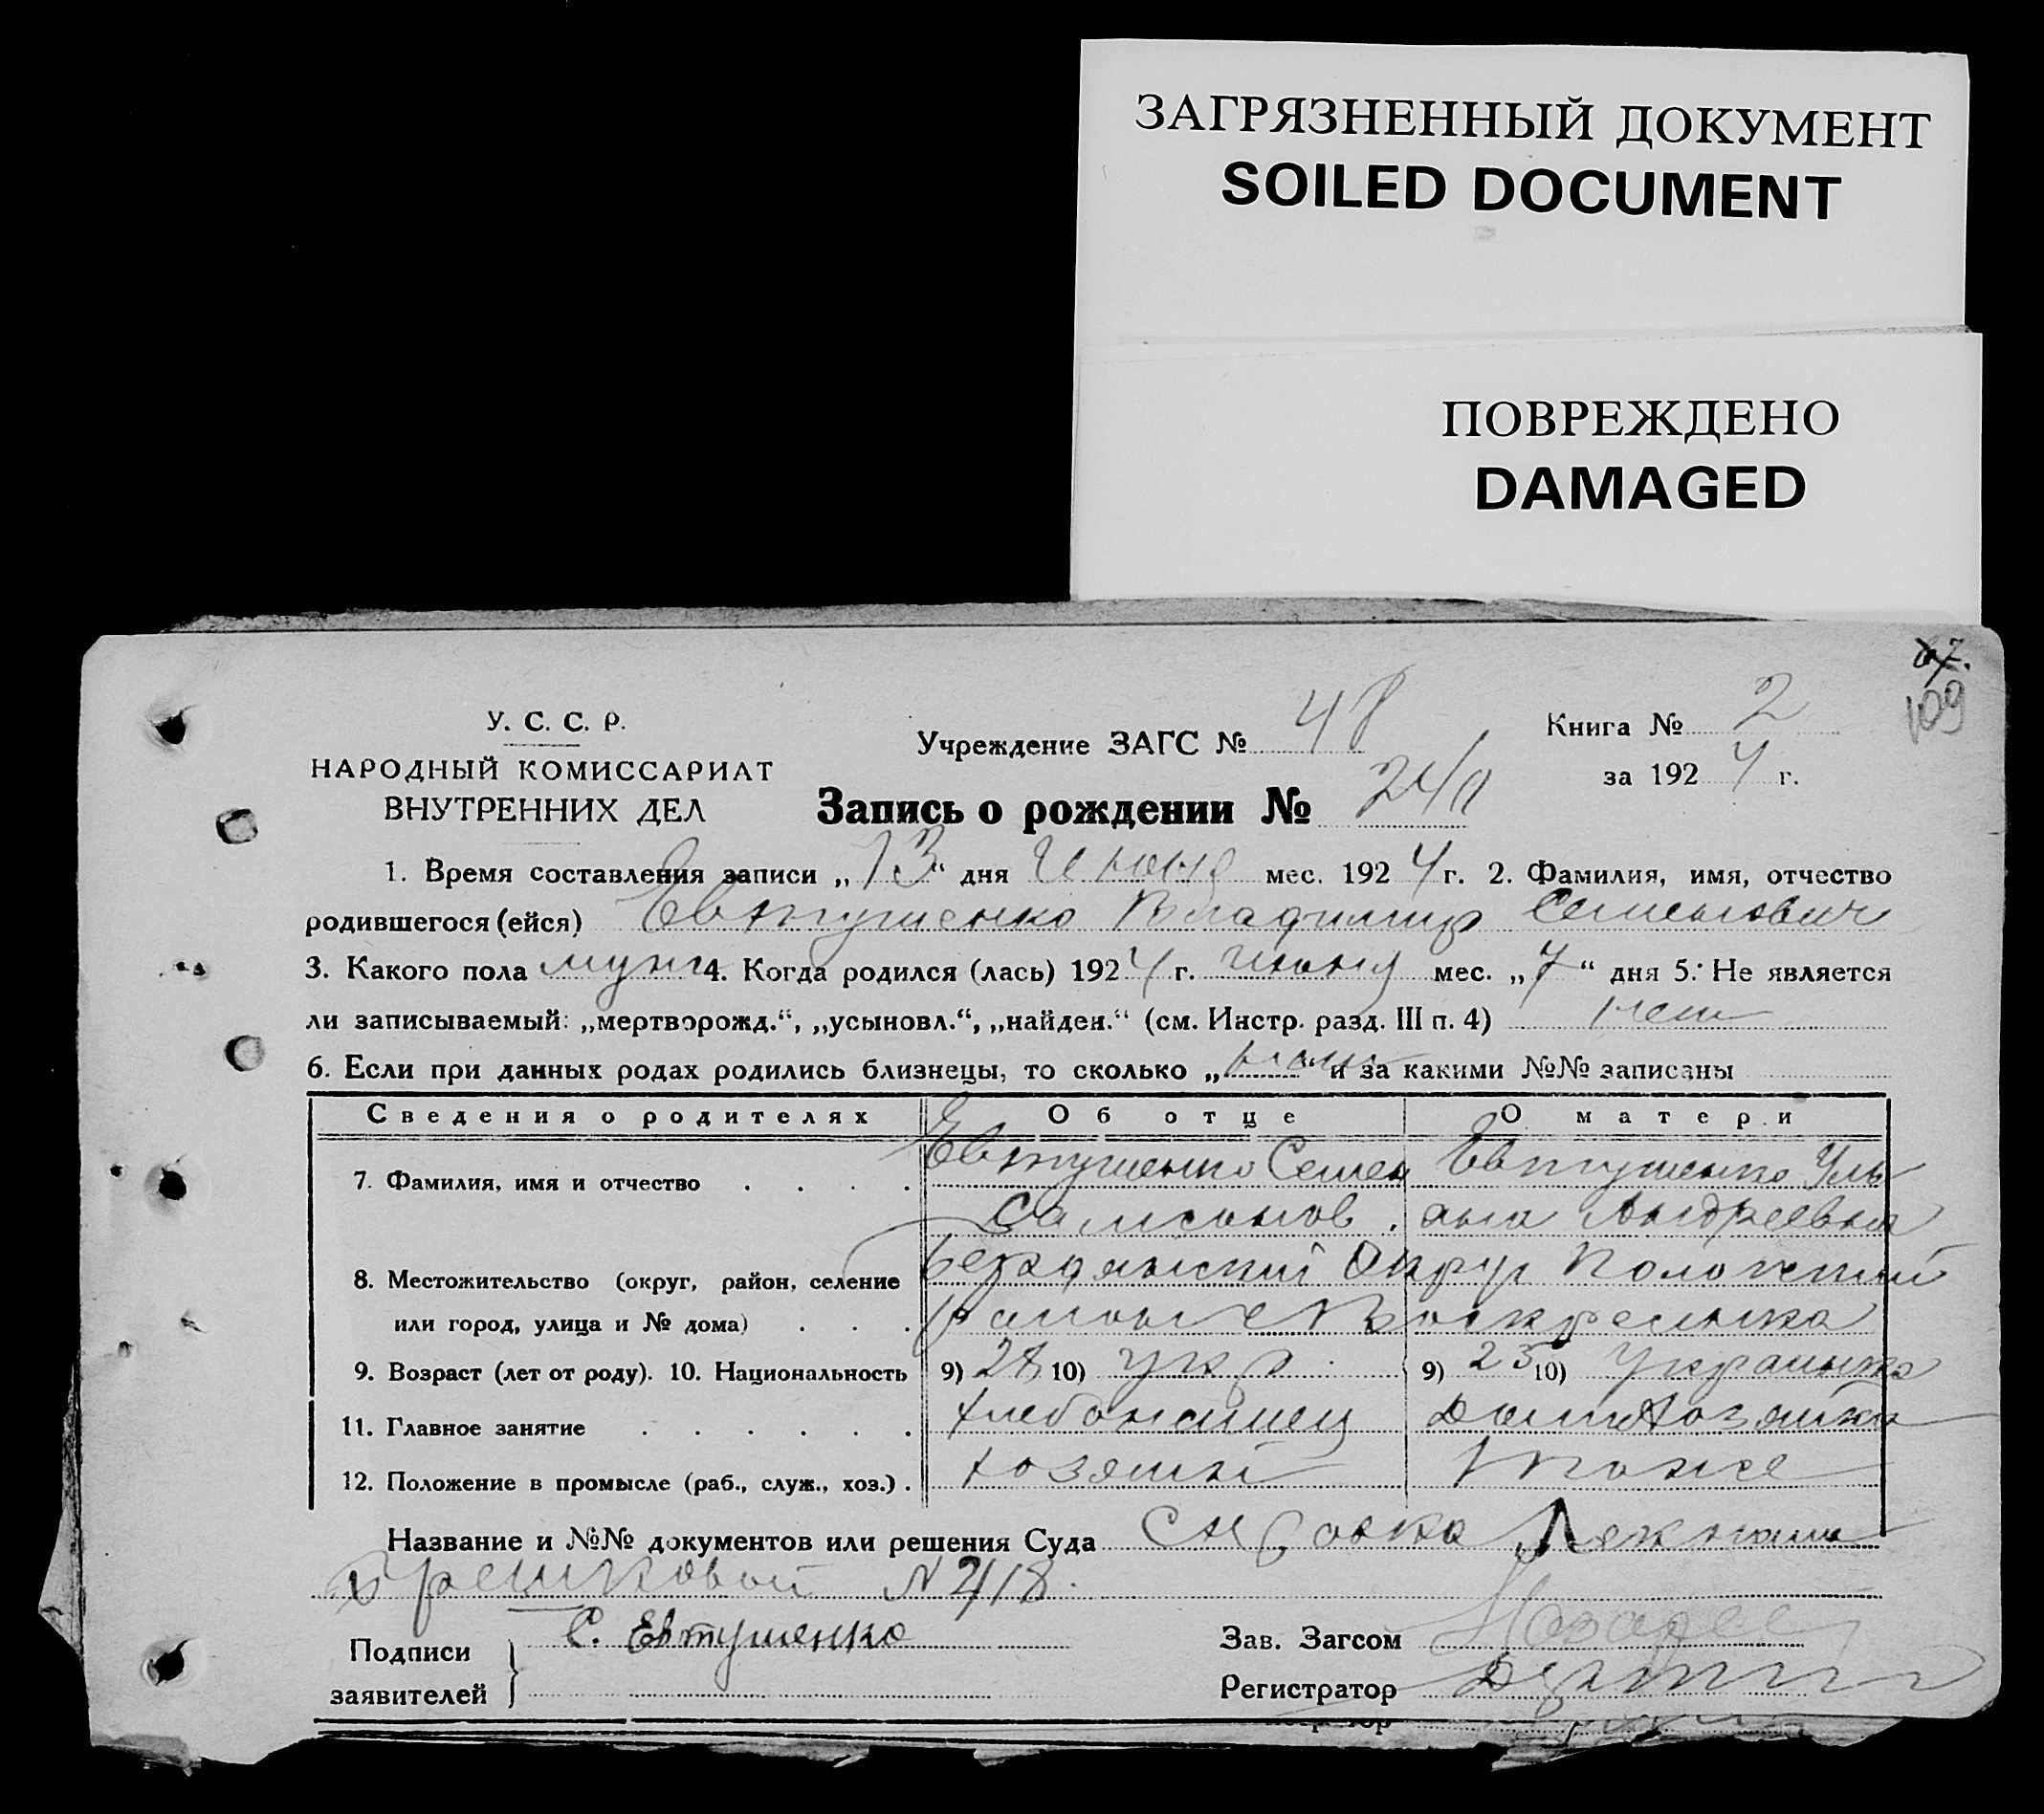 ЗАГРЯЗНЕННЫЙ ДОКУМЕНТ
SOILED DOCUMENT
ПОВРЕЖДЕНО
DAMAGED
109
У. С. С. Р.
НАРОДНЫЙ КОМИССАРИАТ
ВНУТРЕННИХ ДЕЛ
Учреждение ЗАГС № 48
Книга № 2
за 1924 г.
Запись о рождении №
1. Время составления записи „13“ дня Июня мес. 1924 г. 2. Фамилия, имя, отчество
родившегося (ейся) Евтушенко Владимир Семенович
3. Какого пола муж 4. Когда родился (лась) 1924 г. июня мес. „7“ дня 5. Не является
ли записываемый: „мертворожд.“, „усыновл.“, „найден.“ (см. Инстр. разд. III п. 4) нет
6. Если при данных родах родились близнецы, то сколько „нет“ и за какими №№ записаны
Сведения о родителях Об отце О матери
7. Фамилия, имя и отчество Евтушенко Семен Евтушенко Уль
Самсонов. яна Андреевна
8. Местожительство (округ, район, селение Бердянский Округ Пологский
или город, улица и № дома) район с Воскресенка
9. Возраст (лет от роду). 10. Национальность 9) 28 10) укр. 9) 25 10) Украинка
11. Главное занятие хлебопашец Домохозяйка
12. Положение в промысле (раб., служ., хоз.) хозяин тоже
Название и №№ документов или решения Суда Справка
№ 2/18.
Подписи заявителей С. Евтушенко
Зав. Загсом
Регистратор